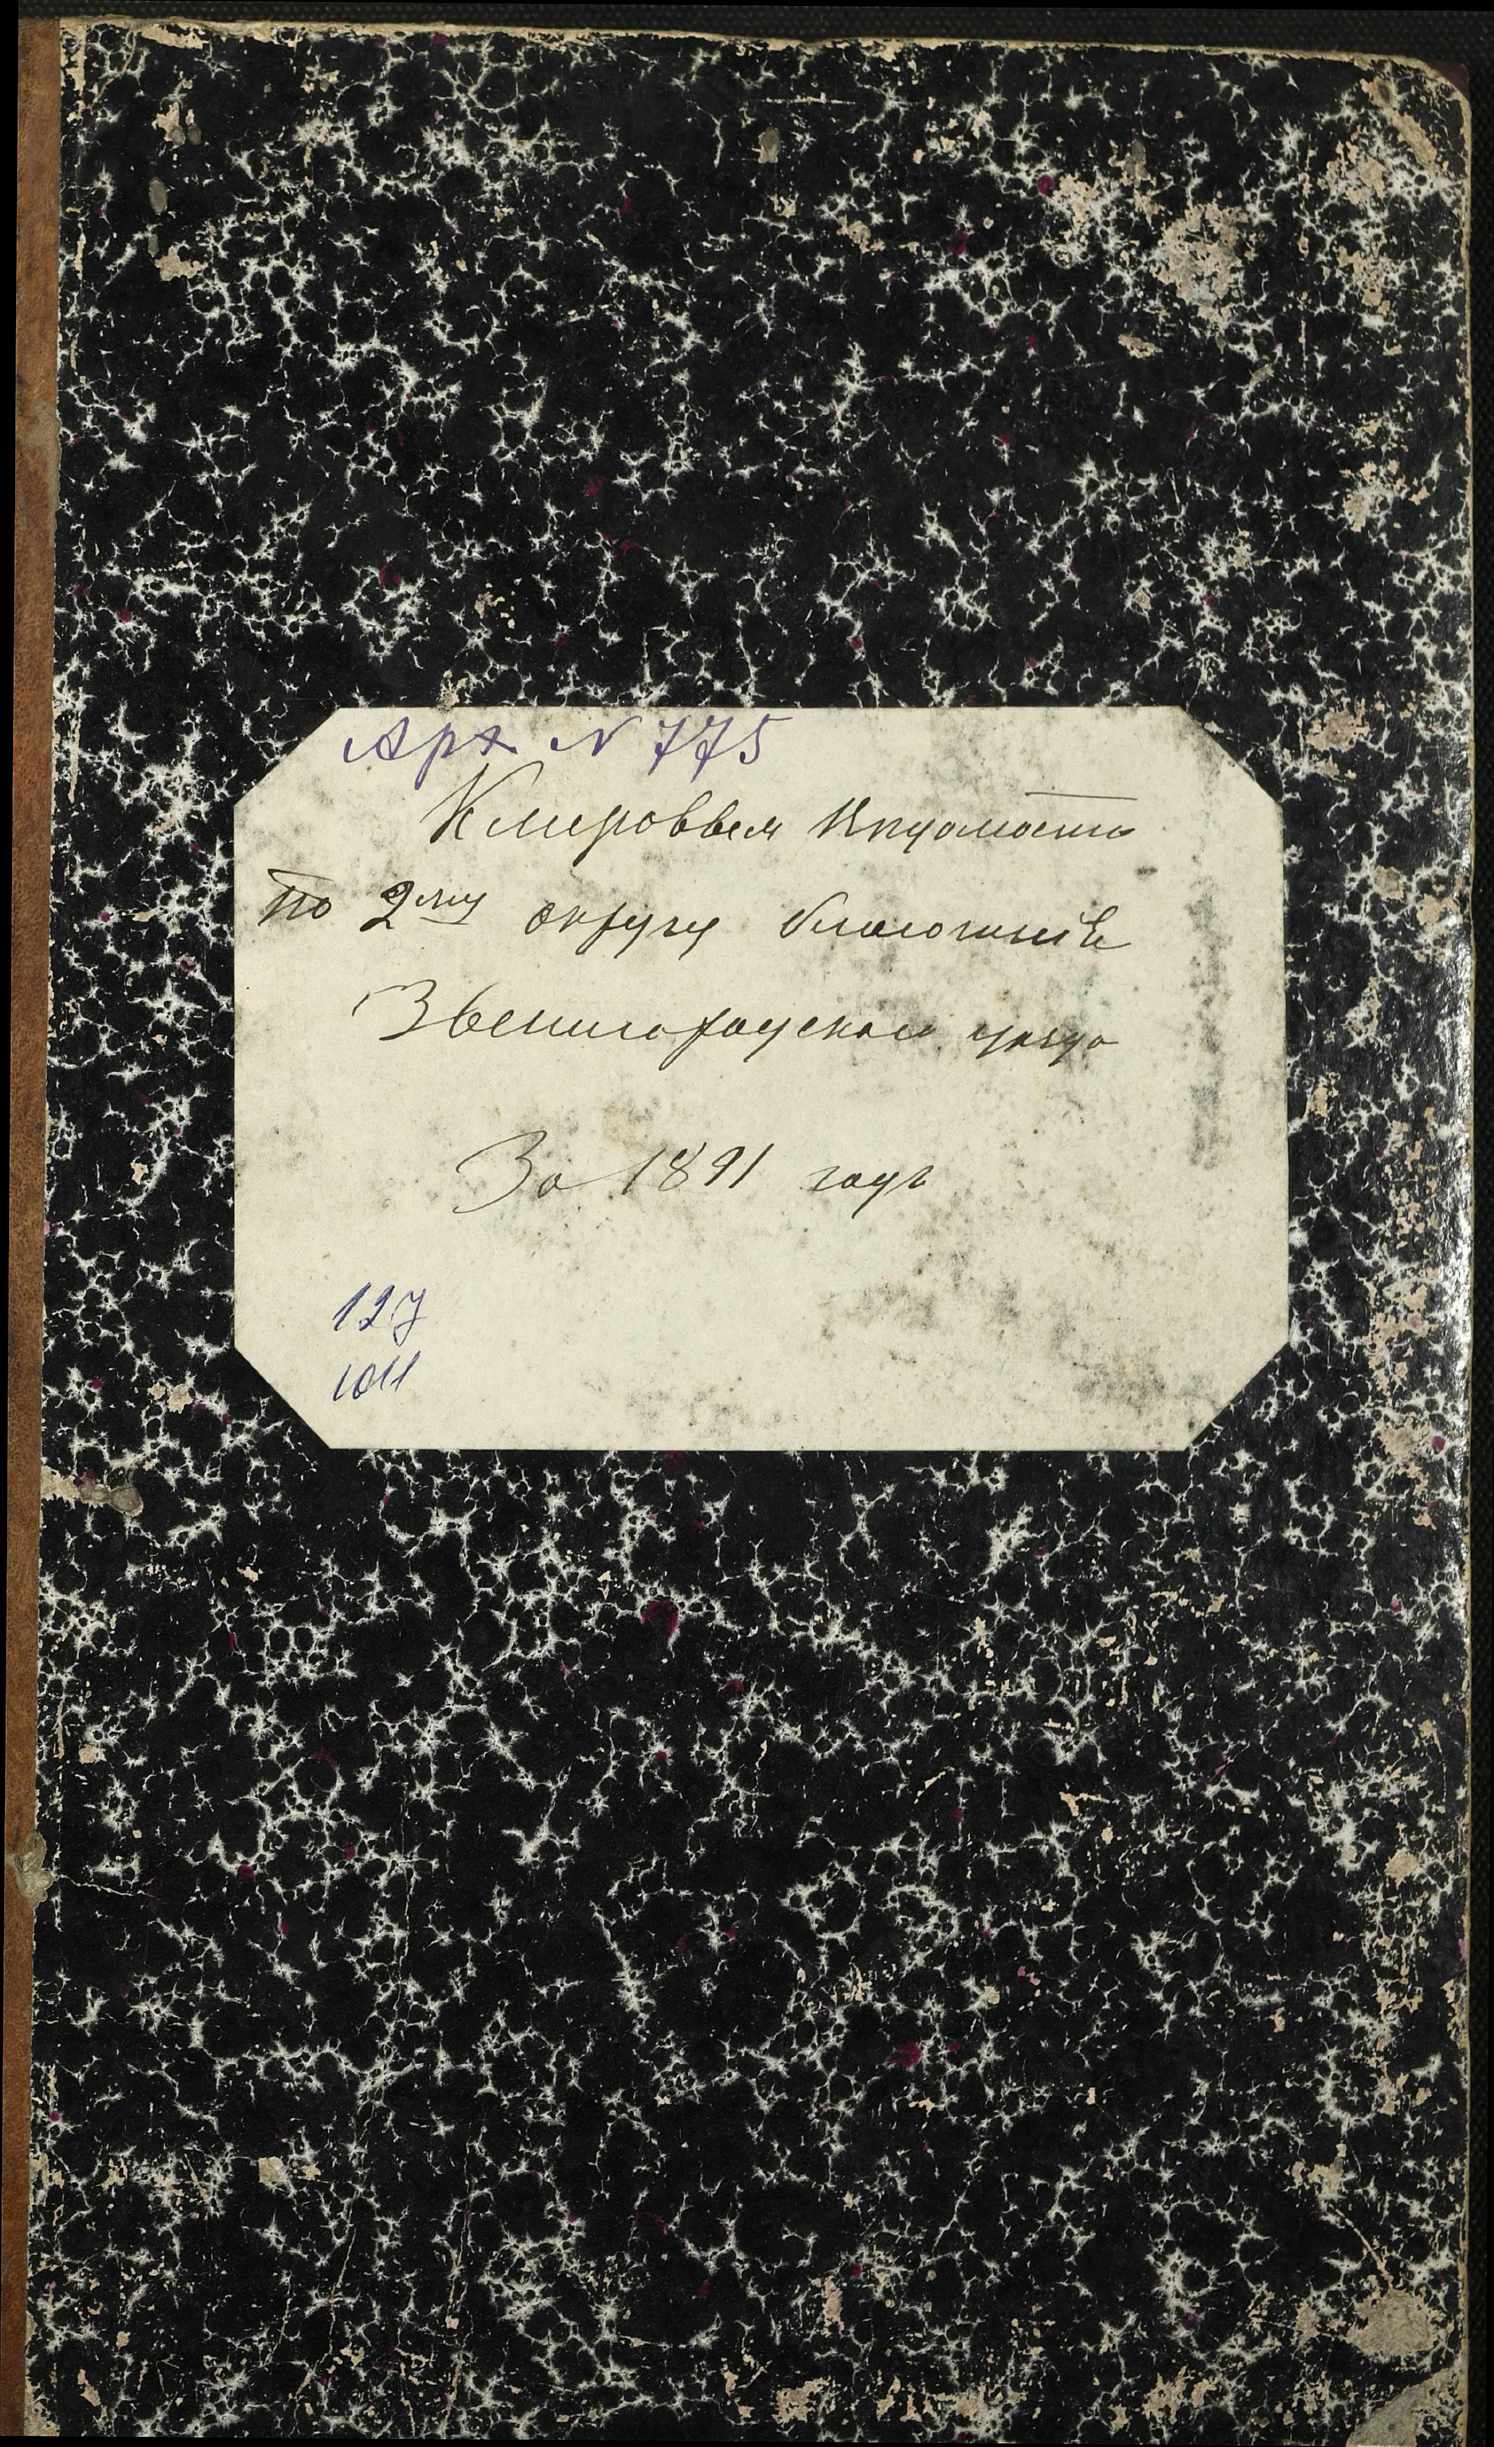 Арх N 775
Клировыя Вѣдомости
по 2му округу благочинія
Звенигородскаго уѣзда
За 1891 годъ
127
1011